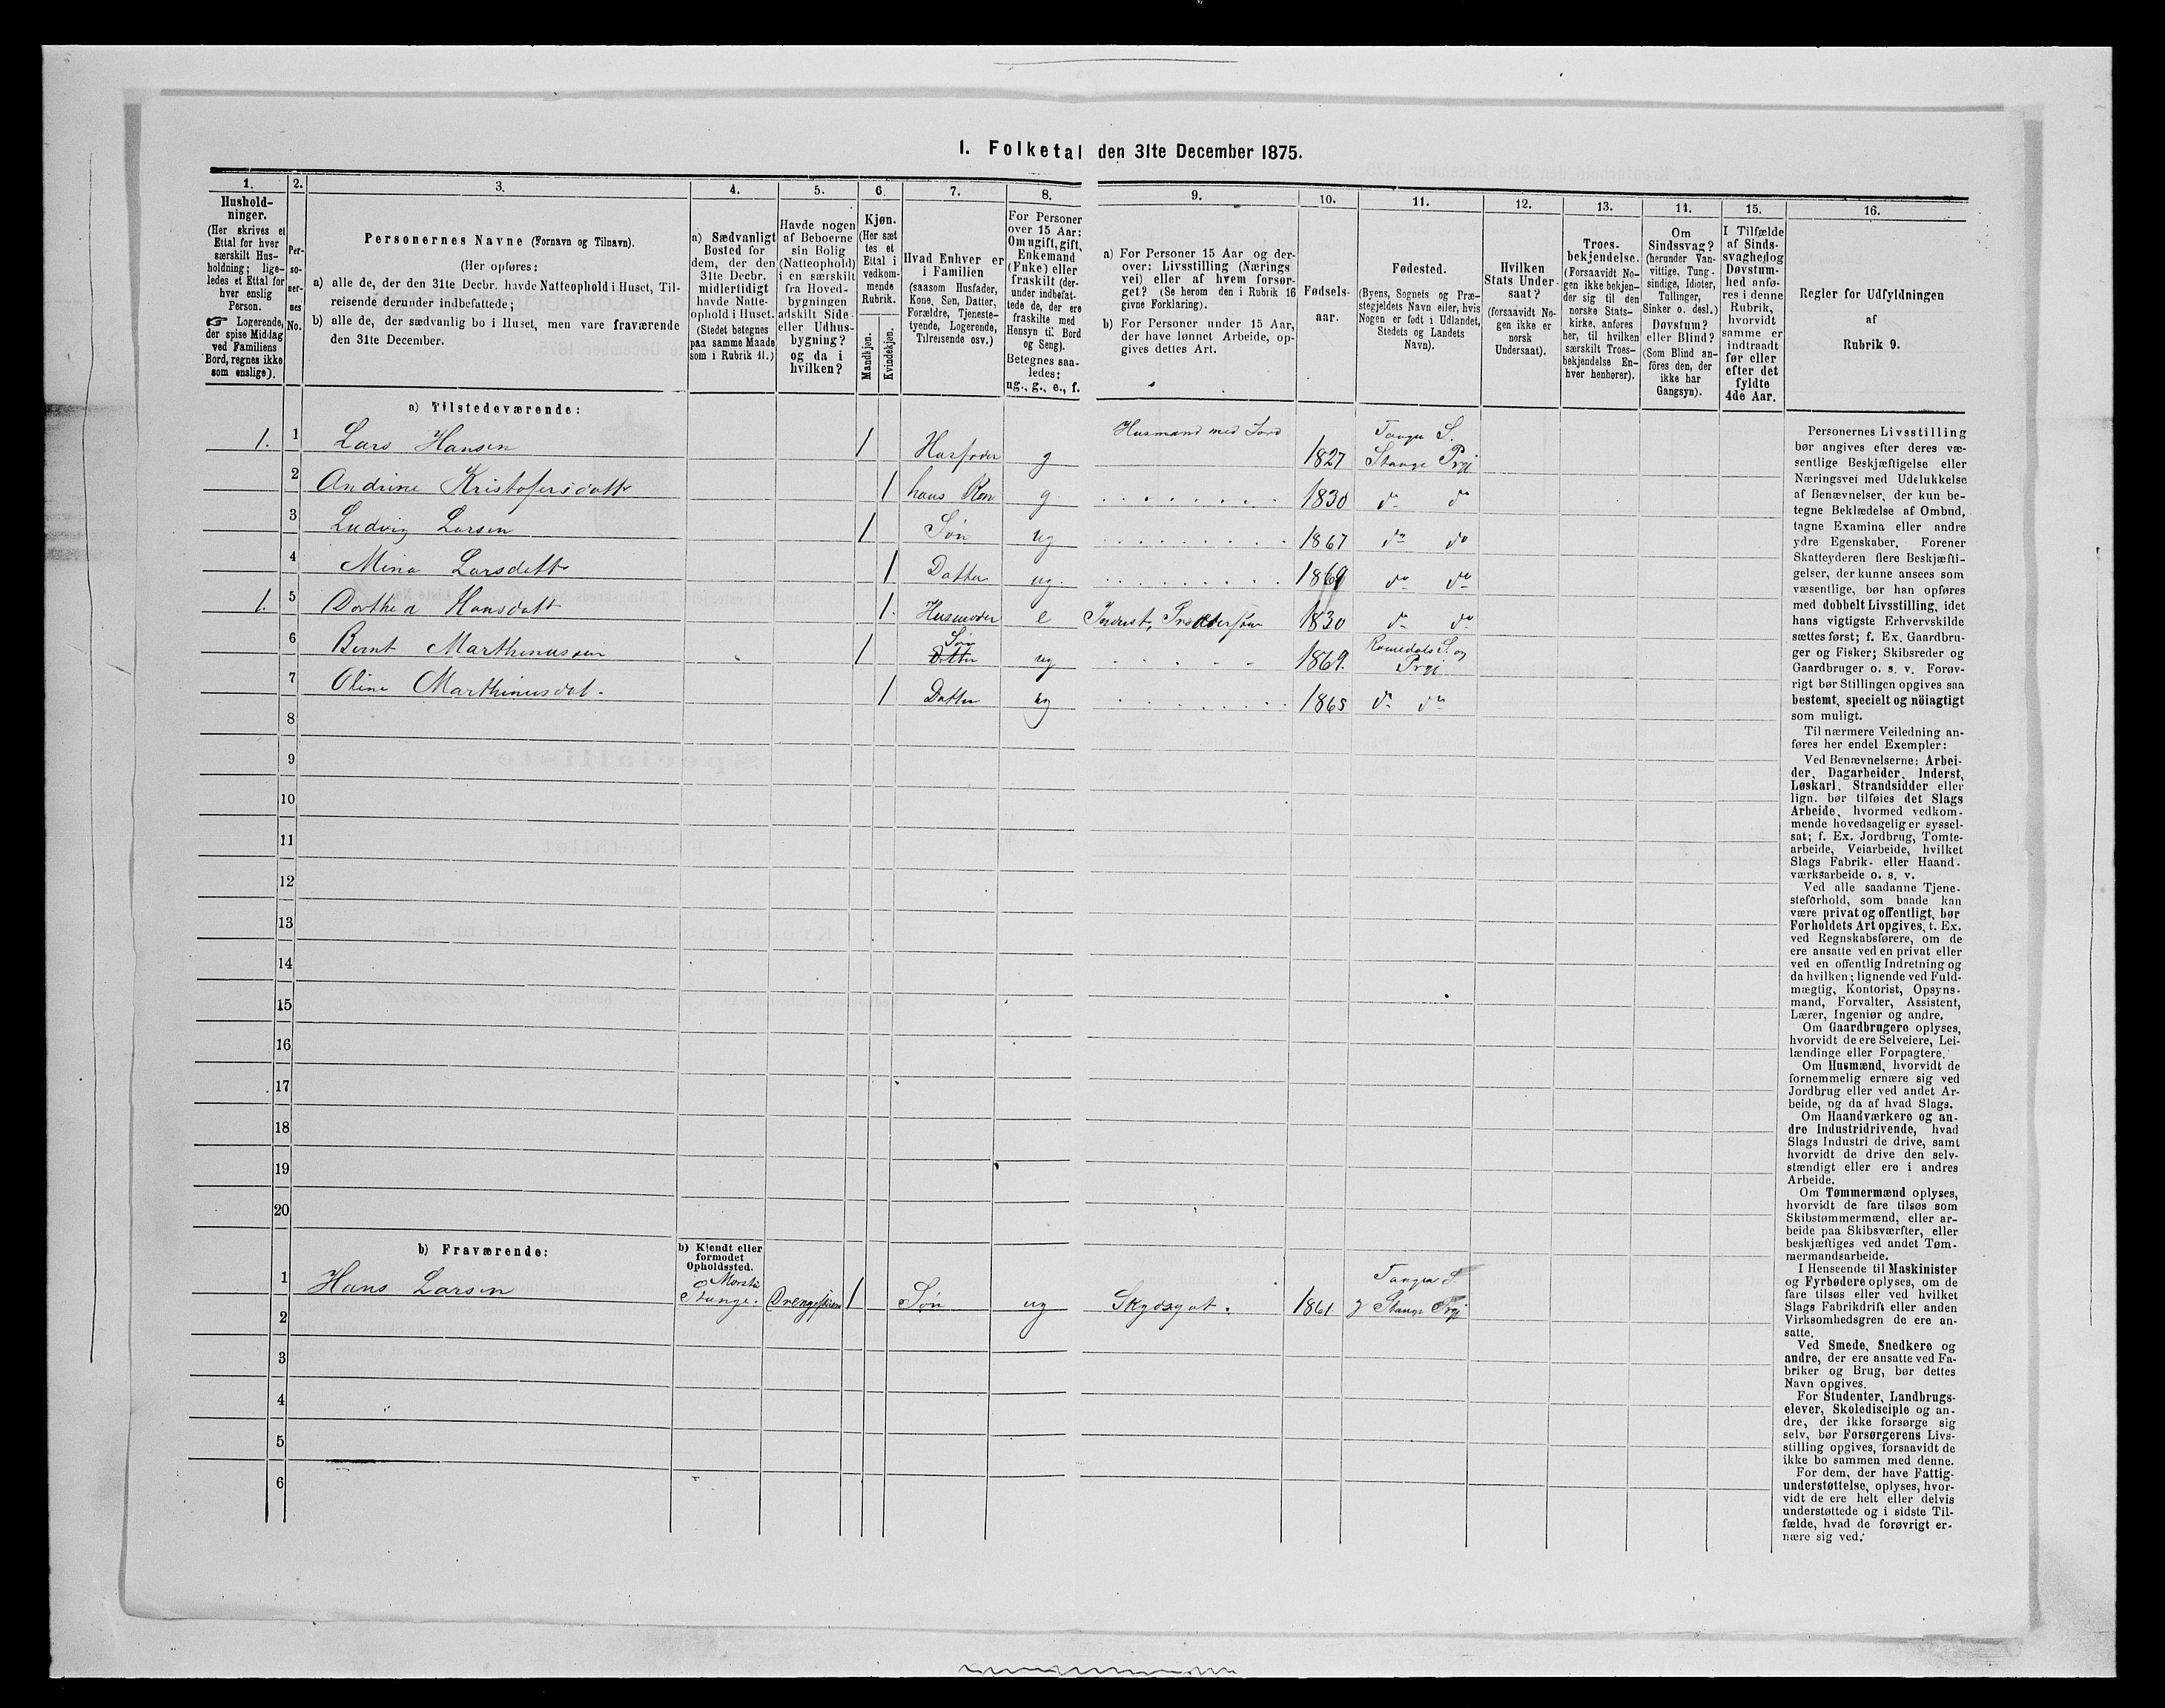 1. Folketal den 31te December 1875.
1. 2. 3. 4. 5. 6. 7. 8. 9. 10. 11. 12. 13. 14. 15. 16.
Hushold-
ninger.
(Her skrives et
Ettal for hver
særskilt Hus-
holdning; lige-
ledes et Ettal for
hver enslig
Person.
☞ Logerende,
der spise Middag
ved Familiens
Bord, regnes ikke
som enslige).
Per-
so-
ner-
nes
No.
Personernes Navne (Fornavn og Tilnavn).
(Her opføres:
a) alle de, der den 31te Decbr. havde Natteophold i Huset, Til-
reisende derunder indbefattede;
b) alle de, der sædvanlig bo i Huset, men vare fraværende
den 31te December.
a) Sædvanligt
Bosted for
dem, der den
31te Decbr.
midlertidigt
havde Natte-
ophold i Huset.
(Stedet betegnes
paa samme Maade
som i Rubrik 11.)
Havde nogen
af Beboerne
sin Bolig
(Natteophold)
i en særskilt
fra Hoved-
bygningen
adskilt Side-
eller Udhus-
bygning?
og da i
hvilken?
Kjøn.
(Her sæt
tes et
Ettal i
vedkom-
mende
Rubrik.
Mandkjøn.
Kvindekjøn.
Hvad Enhver er
i Familien
(saasom Husfader,
Kone, Søn, Datter,
Forældre, Tjeneste-
tyende, Logerende,
Tilreisende osv.)
For Personer
over 15 Aar:
Om ugift, gift,
Enkemand
(Enke) eller
fraskilt (der-
under indbefat-
tede de, der ere
fraskilte med
Hensyn til Bord
og Seng).
Betegnes saa-
ledes:
ug., g., e., f.
a) For Personer 15 Aar og der-
over: Livsstilling (Nærings
vei) eller af hvem forsør-
get? (Se herom den i Rubrik 16
givne Forklaring).
b) For Personer under 15 Aar,
der have lønnet Arbeide, op-
gives dettes Art.
Fødsels-
aar.
Fødested.
(Byens, Sognets og Præ-
stegjeldets Navn eller, hvis
Nogen er født i Udlandet,
Stedets og Landets
Navn).
Hvilken
Stats Under-
saat?
(forsaavidt No-
gen ikke er
norsk
Undersaat).
Troes-
bekjendelse.
(Forsaavidt No-
gen ikke bekjen-
der sig til den
norske Stats-
kirke, anføres
her, til hvilken
særskilt Troes-
bekjendelse En-
hver henhører).
Om
Sindssvag?
(herunder Van-
vittige, Tung-
sindige, Idioter,
Tullinger,
Sinker o. desl.)
Døvstum?
eller Blind?
(Som Blind an-
föres den, der
ikke har
Gangsyn).
I Tilfælde
af Sinds-
svaghed og
Døvstum-
hed anfø-
res i denne
Rubrik,
hvorvidt
samme er
indtraadt
før eller
efter det
fyldte
4de Aar.
Regler for Udfyldningen
af
Rubrik 9.
a) Tilstedeværende:
1. 1 Lars Hansen 1 Husfader g Husmand med Jord 1827 Tangen S. Stange Prgj
2 Andrine Kristofersdattr 1 hans Kone g 1830 do do
3 Ludvig Larsen 1 Søn ug 1867 do do
4 Mina Larsdattr 1 Datter ug. 1869 do do
1. 5 Dorthea Hansdatt 1. Husmoder e Inderst, 1830 do do
6 Bernt Marthinussen 1 Søn Datter ug 1869. Romedals S. og Prgj
7 Oline Marthinusdat. 1 Datter ug 1865 do do
8
9
10
11
12
13
14
15
16
17
18
19
20
b) Fraværende:
b) Kjendt eller
formodet
Opholdssted.
1 Hans Larsen Stange. 1 Søn ug Skydsgut. 1861 Tangen S. g Stange Prgj
2
3
4
5
6
Personernes Livsstilling
bør angives efter deres væ-
sentlige Beskjæftigelse eller
Næringsvei med Udelukkelse
af Benævnelser, der kun be-
tegne Beklædelse af Ombud,
tagne Examina eller andre
ydre Egenskaber. Forener
Skatteyderen flere Beskjæfti-
gelser, der kunne ansees som
væsentlige, bør han opføres
med dobbelt Livsstilling, idet
hans vigtigste Erhvervskilde
sættes først; f. Ex. Gaardbru-
ger og Fisker; Skibsreder og
Gaardbruger o. s. v. Forøv-
rigt bør Stillingen opgives saa
bestemt, specielt og nöiagtigt
som muligt.
Til nærmere Veiledning an-
føres her endel Exempler:
Ved Benævnelserne: Arbei-
der, Dagarbeider, Inderst,
Løskarl, Strandsidder eller
lign. bør tilføies det Slags
Arbeide, hvormed vedkom-
mende hovedsagelig er syssel-
sat; f. Ex. Jordbrug, Tomte-
arbeide, Veiarbeide, hvilket
Slags Fabrik- eller Haand-
værksarbeide o. s. v.
Ved alle saadanne Tjene-
steforhold, som baade kan
være privat og offentligt, bør
Forholdets Art opgives, f. Ex.
ved Regnskabsførere, om de
ere ansatte ved en privat eller
ved en offentlig Indretning og
da hvilken; lignende ved Fuld-
mægtig, Kontorist, Opsyns-
mand, Forvalter, Assistent,
Lærer, Ingeniør og andre.
Om Gaardbrugere oplyses,
hvorvidt de ere Selveiere, Lei-
lændinge eller Forpagtere.
Om Husmænd, hvorvidt de
fornemmelig ernære sig ved
Jordbrug eller ved andet Ar-
beide, og da af hvad Slags.
Om Haandværkere og an-
dre Industridrivende, hvad
Slags Industri de drive, samt
hvorvidt de drive den selv-
stændigt eller ere i andres
Arbeide.
Om Tømmermænd oplyses,
hvorvidt de fare tilsøs som
Skibstømmermænd, eller ar-
beide paa Skibsværfter, eller
beskjæftiges ved andet Tøm-
mermandsarbeide.
I Henseende til Maskinister
og Fyrbødere oplyses, om de
fare tilsøs eller ved hvilket
Slags Fabrikdrift eller anden
Virksomhedsgren de ere an-
satte.
Ved Smede, Snedkere og
andre, der ere ansatte ved Fa-
briker og Brug, bør dettes
Navn opgives.
For Studenter, Landbrugs-
elever, Skoledisciple og an-
dre, der ikke forsørge sig
selv, bør Forsørgerens Livs-
stilling opgives, forsaavidt de
ikke bo sammen med denne.
For dem, der have Fattig-
understøttelse, oplyses, hvor-
vidt de ere helt eller delvis
understøttede og i sidste Til-
fælde, hvad de forøvrigt er-
nære sig ved.